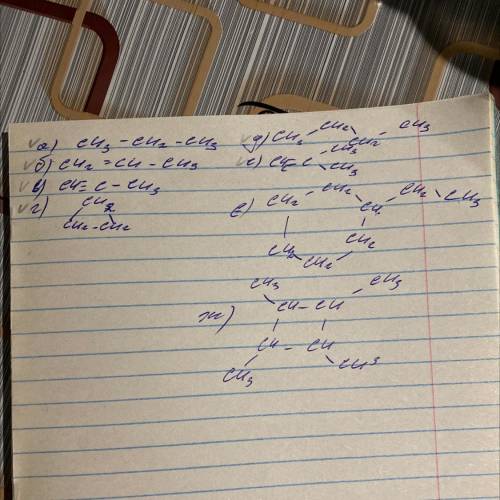 а) CH3 - CH2 - CH3
б) CH2 = CH - CH3
в) CH ≡ C - CH3
г) CH2
CH2 - CH2
д) CH3 CH2 CH2 CH3
е) C CH3
CH3
ё) CH2 CH2 CH CH2 CH3
CH2 CH2 CH2
ж) CH3 CH - CH CH3
CH - CH
CH3 CH3